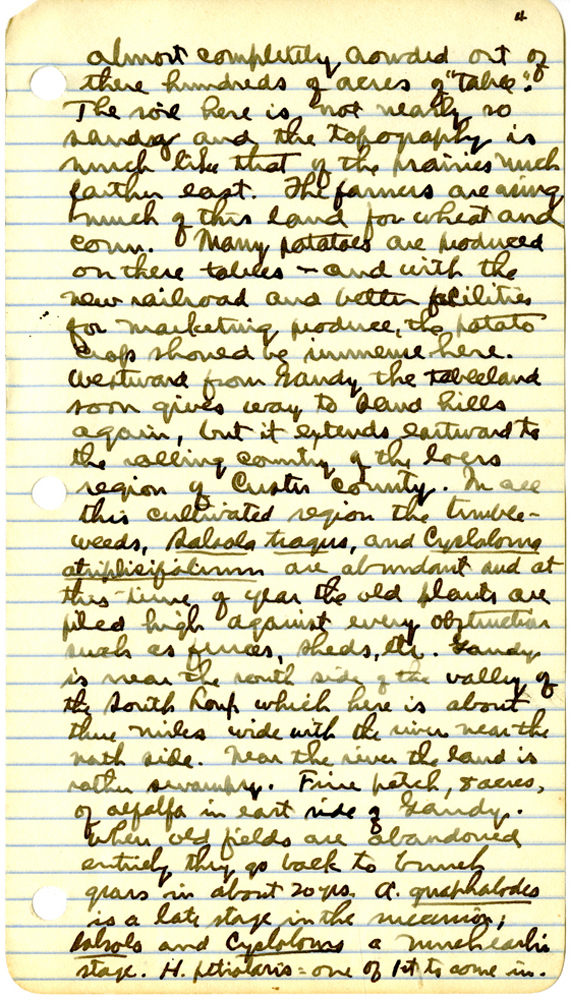 4
almost completely crowded out of
these hundreds of acres of "table".
The soil here is not nearly so
sandy and the topography is
much like that of the prairies much
farther east. The farmers are using
much of this land for wheat and
corn. Many potatoes are produced
on these tables - and with the
new railroad and better facilities
for marketing produce, the potato
crop should be immense here.
Westward from Gandy the tableland
soon gives way to sand hills
again, but it extends eastward to
the rolling country of the loess
region of Custer county. In all
this cultivated region the tumble-
weeds, Salsola tragus, and Cycloloma
atriplicifolium are abundant and at
this time of year the old plants are
piled high against every obstruction
such as fences, sheds, etc. Gandy
is near the south side of the valley of
the South Loup which here is about
three miles wide with the river near the
north side. Near the river the land is
rather swampy. Fine patch, 8 acres,
of alfalfa in east side of Gandy.
When old fields are abandoned
entirely they go back to bunch
grass in about 20 yrs. A. gnaphalodes
is a late stage in the succession;
Salsola and Cycloloma a much earlier
stage. H. petiolaris = one of 1st to come in.